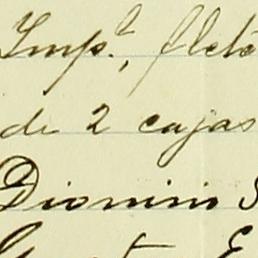 Imp.º, flete
de 2 cajas
Dionisio S